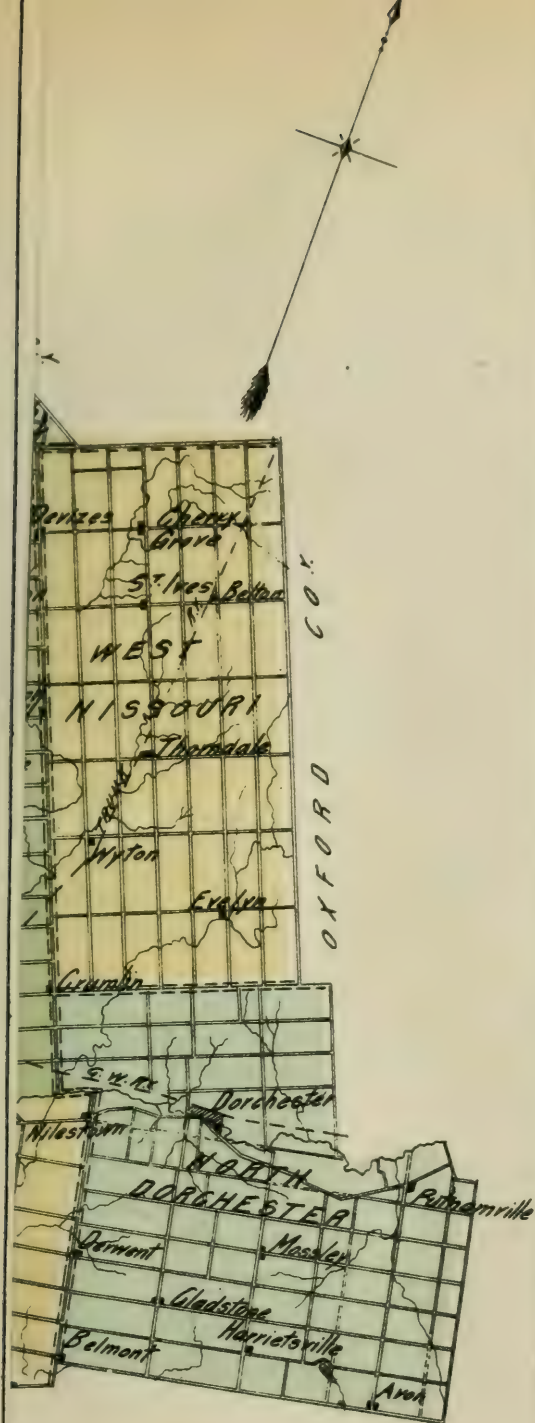 Devizes
Cherry
Grove
St. Ives
Belton
WEST
NISSOURI
Thorndale
TRUNK
Wyton
Evelyn
Crumlin
OXFORD COY.
G.W.RY.
Dorchester
Nilestown
NORTH
DORCHESTER
Putnamville
Derwent
Mossley
Gladstone
Harrietsville
Belmont
Avon